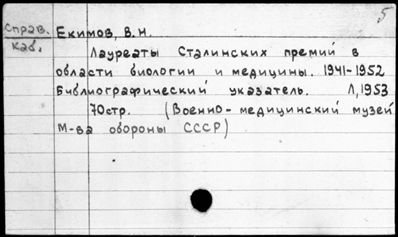 5
Справ. Екимов, В.Н.
каб.
Лауреаты Сталинских премий в
области биологии и медицины. 1941-1952
Библиографический указатель. Л, 1953
70стр. (Военно-медицинский музей
М-ва обороны СССР)